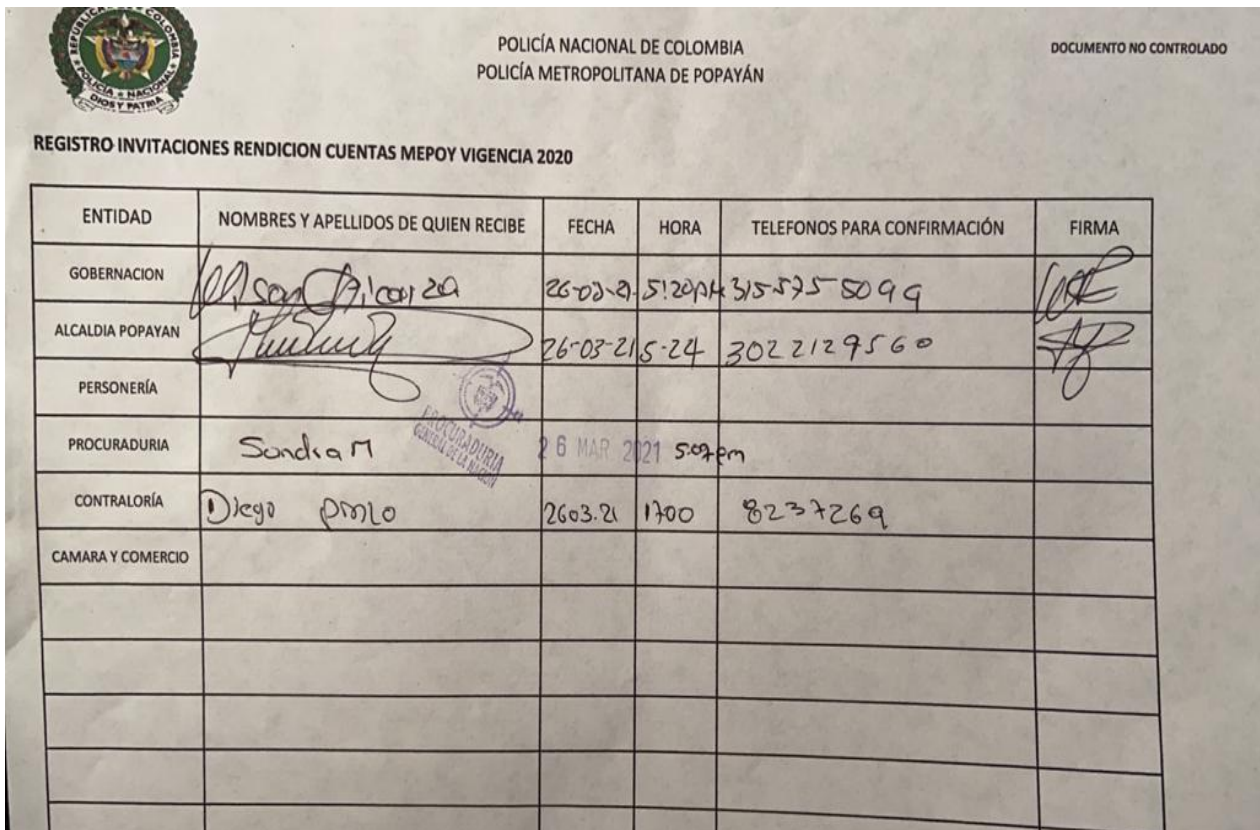 REPUBLICA DE COLOMBIA
POLICÍA NACIONAL
DIOS Y PATRIA
POLICÍA NACIONAL DE COLOMBIA
POLICÍA METROPOLITANA DE POPAYÁN
DOCUMENTO NO CONTROLADO
REGISTRO INVITACIONES RENDICION CUENTAS MEPOY VIGENCIA 2020
ENTIDAD NOMBRES Y APELLIDOS DE QUIEN RECIBE FECHA HORA TELEFONOS PARA CONFIRMACIÓN FIRMA
GOBERNACION 5:20PM 315 575 5099
ALCALDIA POPAYAN 26-03-21 5-24 3022129560
PERSONERÍA
PROCURADURIA Sandra M PROCURADURIA GENERAL DE LA NACIÓN 26 MAR 2021 5:07pm
CONTRALORÍA Diego 2603.21 1700 8237269
CAMARA Y COMERCIO